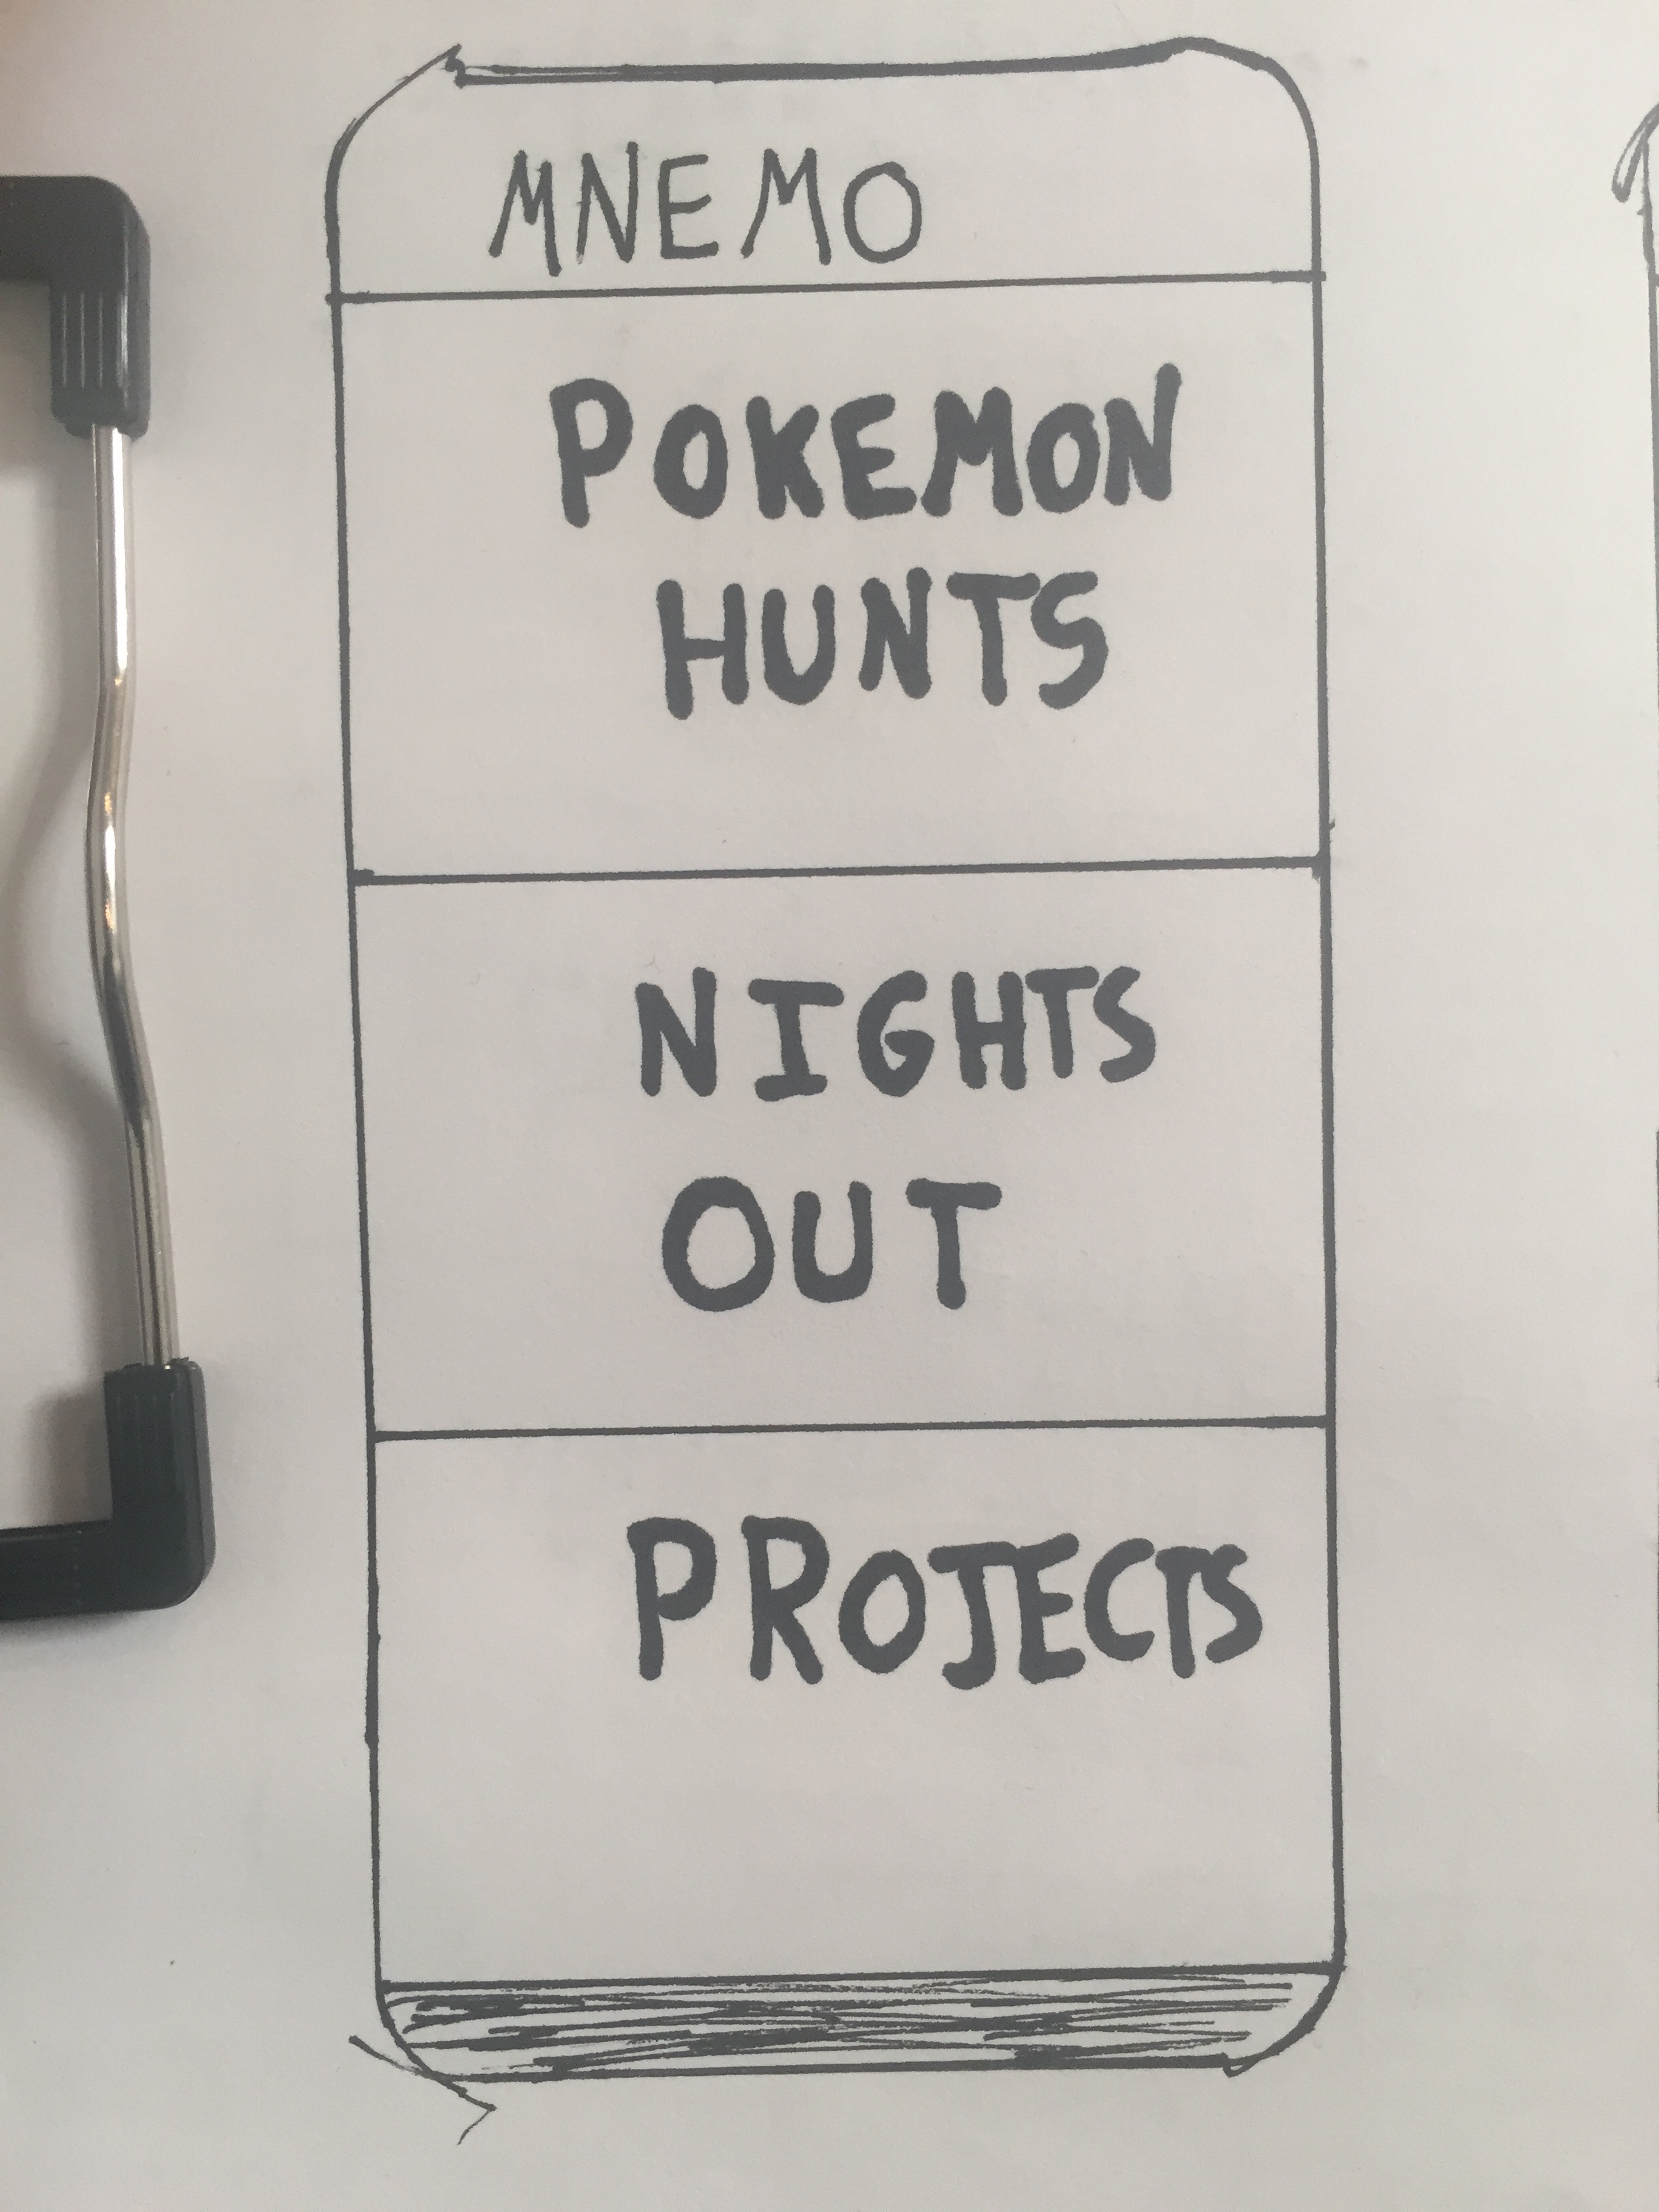 MNEMO
POKEMON
HUNTS
NIGHTS
OUT
PROJECTS